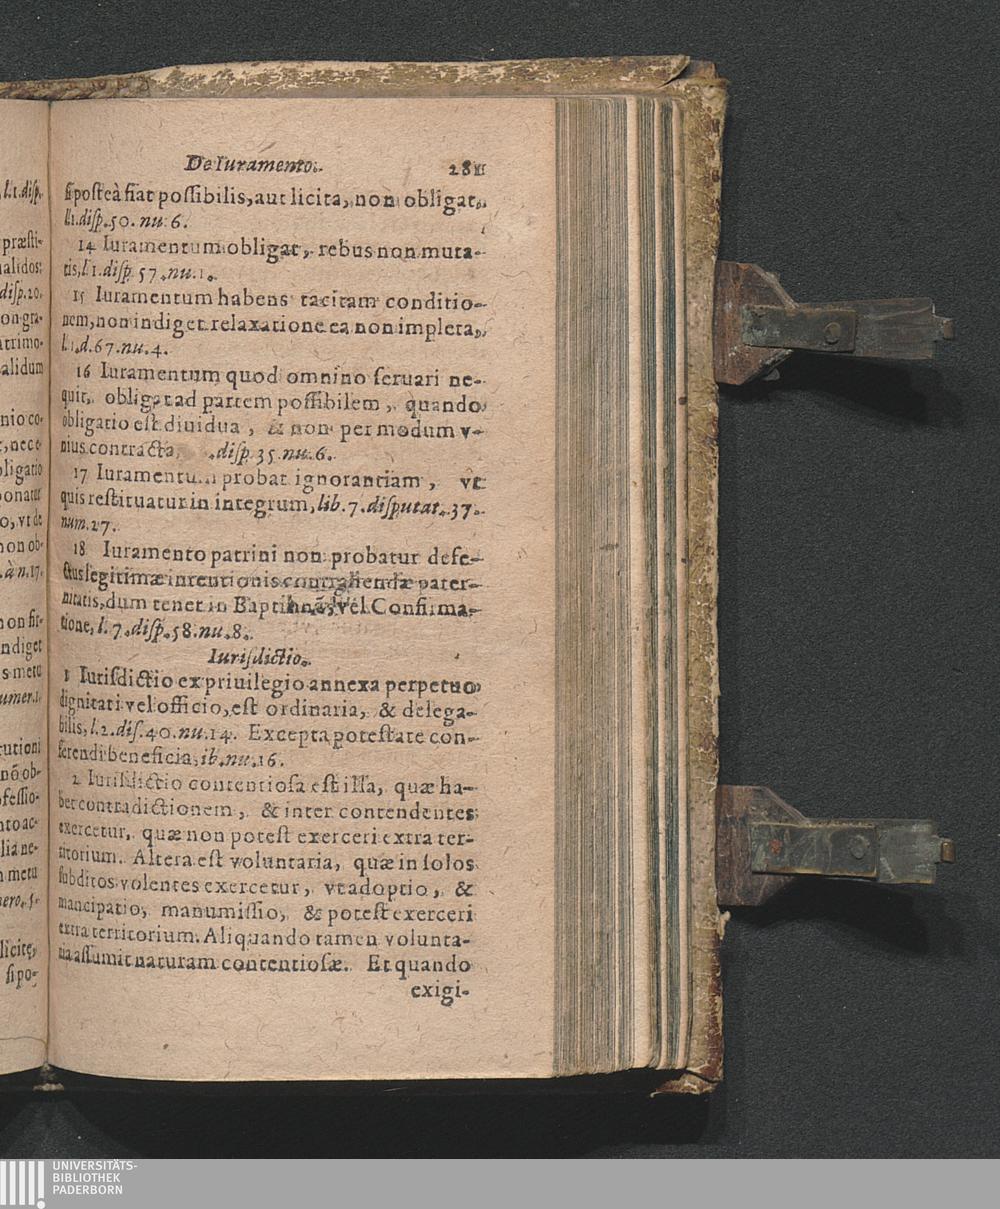 l.1.disp.
præsti-
alidos:
disp.20.
on gra-
atrimo-
alidum
nio co-
, nec e
bligatio
ponatur
o, vt de
non ob-
. à n.17.
non sit
ndiget
s metu
umer.1.
tutioni
nõ ob-
ofessio-
nto ac-
lia ne-
metu
nero. 5.
licite,
si po-
De Iuramento. 281
si posteà fiat possibilis, aut licita, non obligat,
l.1.disp.50. nu. 6.
14 Iuramentum obligat, rebus non muta-
tis, l.1.disp. 57. nu.1.
15 Iuramentum habens tacitam conditio-
nem, non indiget relaxatione ea non impleta,
l.1.d.67.nu.4.
16 Iuramentum quod omnino seruari ne-
quit, obligat ad partem possibilem, quando
obligatio est diuidua, & non per modum v-
nius contracta, disp. 35. nu.6.
17 Iuramentum probat ignorantiam, vt
quis restituatur in integrum, lib. 7. disputat. 37.
num. 27.
18 Iuramento patrini non probatur defe-
ctus legitimæ intentionis contrahendæ pater-
nitatis, dum tenet in Baptismã, vel Confirma-
tione, l. 7. disp. 58. nu. 8.
Iurisdictio.
1 Iurisdictio ex priuilegio annexa perpetuo
dignitati vel officio, est ordinaria, & delega-
bilis, l.2.dis.40.nu.14. Excepta potestate con-
ferendi beneficia, ib. nu.16.
2 Iurisdictio contentiosa est illa, quæ ha-
bet contradictionem, & inter contendentes
exercetur, quæ non potest exerceri extra ter-
ritorium. Altera est voluntaria, quæ in solos
subditos volentes exercetur, vt adoptio, &
mancipatio, manumissio, & potest exerceri
extra territorium. Aliquando tamen volunta-
ria assumit naturam contentiosæ. Et quando
exigi-
UNIVERSITÄTS-
BIBLIOTHEK
PADERBORN